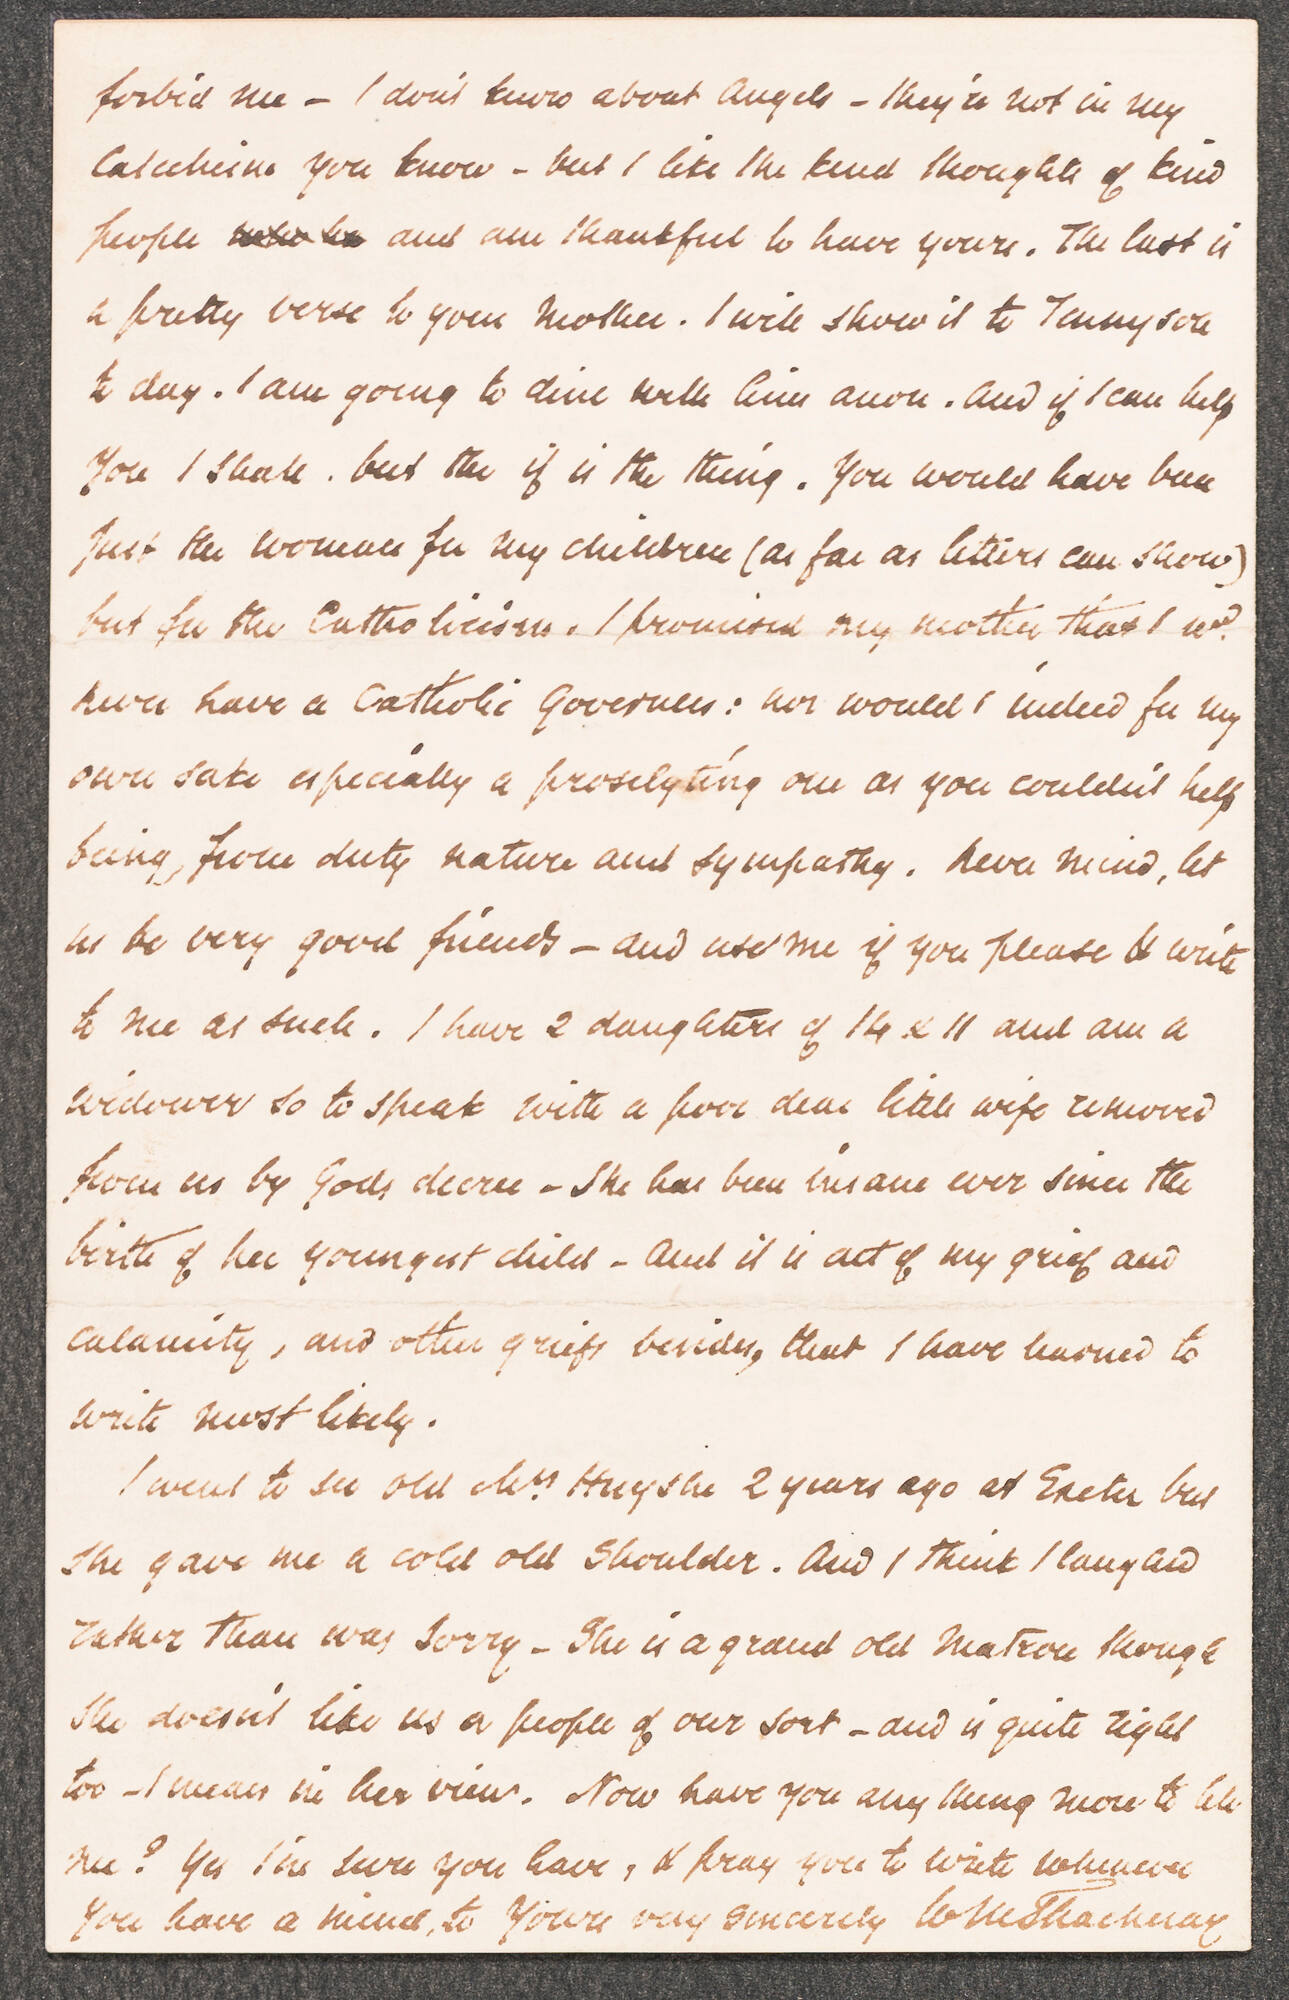 forbid me – I don't know about Angels – they're not in my
Catechism you know – but I like the kind thoughts of kind
people and am thankful to have yours. The last is
a pretty verse to your Mother. I will show it to Tennyson
to day. I am going to dine with him anon. And if I can help
You I shall. but the if is the thing. You would have been
just the woman for my children (as far as letters can show)
but for the Catholicism. I promised my mother that I wd.
never have a Catholic Governess: nor would I indeed for my
own sake especially a proselyting one as you couldn't help
being, from duty nature and sympathy. Never mind, let
us be very good friends – and use me if you please & write
to me as such. I have 2 daughters of 14 & 11 and am a
widower so to speak with a poor dear little wife removed
from us by Gods decree – She has been insane ever since the
birth of her youngest child – And it is out of my grief and
calamity, and other griefs besides, that I have learned to
write most likely.
I went to see old Mrs. Huyshe 2 years ago at Exeter but
she gave me a cold old Shoulder. And I think I laughed
rather than was sorry – She is a grand old Matron though
she doesn't like us or people of our sort – and is quite right
too – I mean in her view. Now have you any thing more to tell
me? Yes I'm sure you have, & pray you to write whenever
you have a mind, to Yours very sincerely W M Thackeray